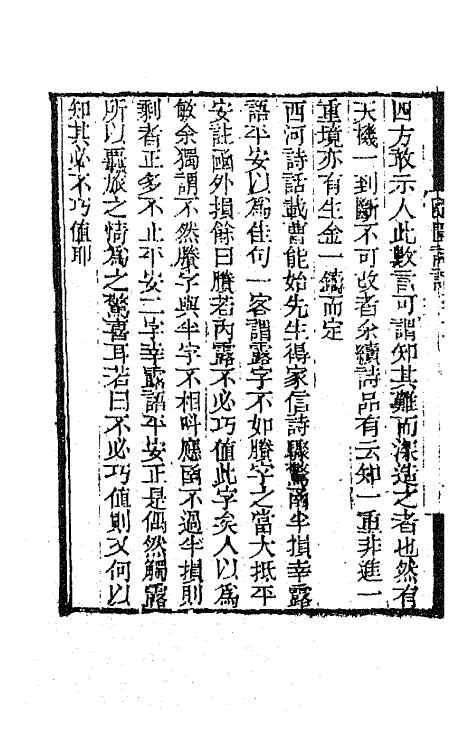 四方敢示人此數言可謂知其難而深造之者也然有
天機一到斷不可改者余續詩品有云知一重非進一
重境亦有生金一鑄而定
西河詩話載曹能始先生得家信詩驟驚函半損幸露
語平安以為佳句一客謂露字不如賸字之當大抵平
安註函外損餘曰賸若內露不必巧值此字矣人以為
敏余獨謂不然賸字與半字不相呌應函不過半損則
剩者正多不止平安二字幸露語平安正是偶然觸露
所以羈旅之情為之驚喜耳若曰不必巧值則又何以
知其必不巧值耶